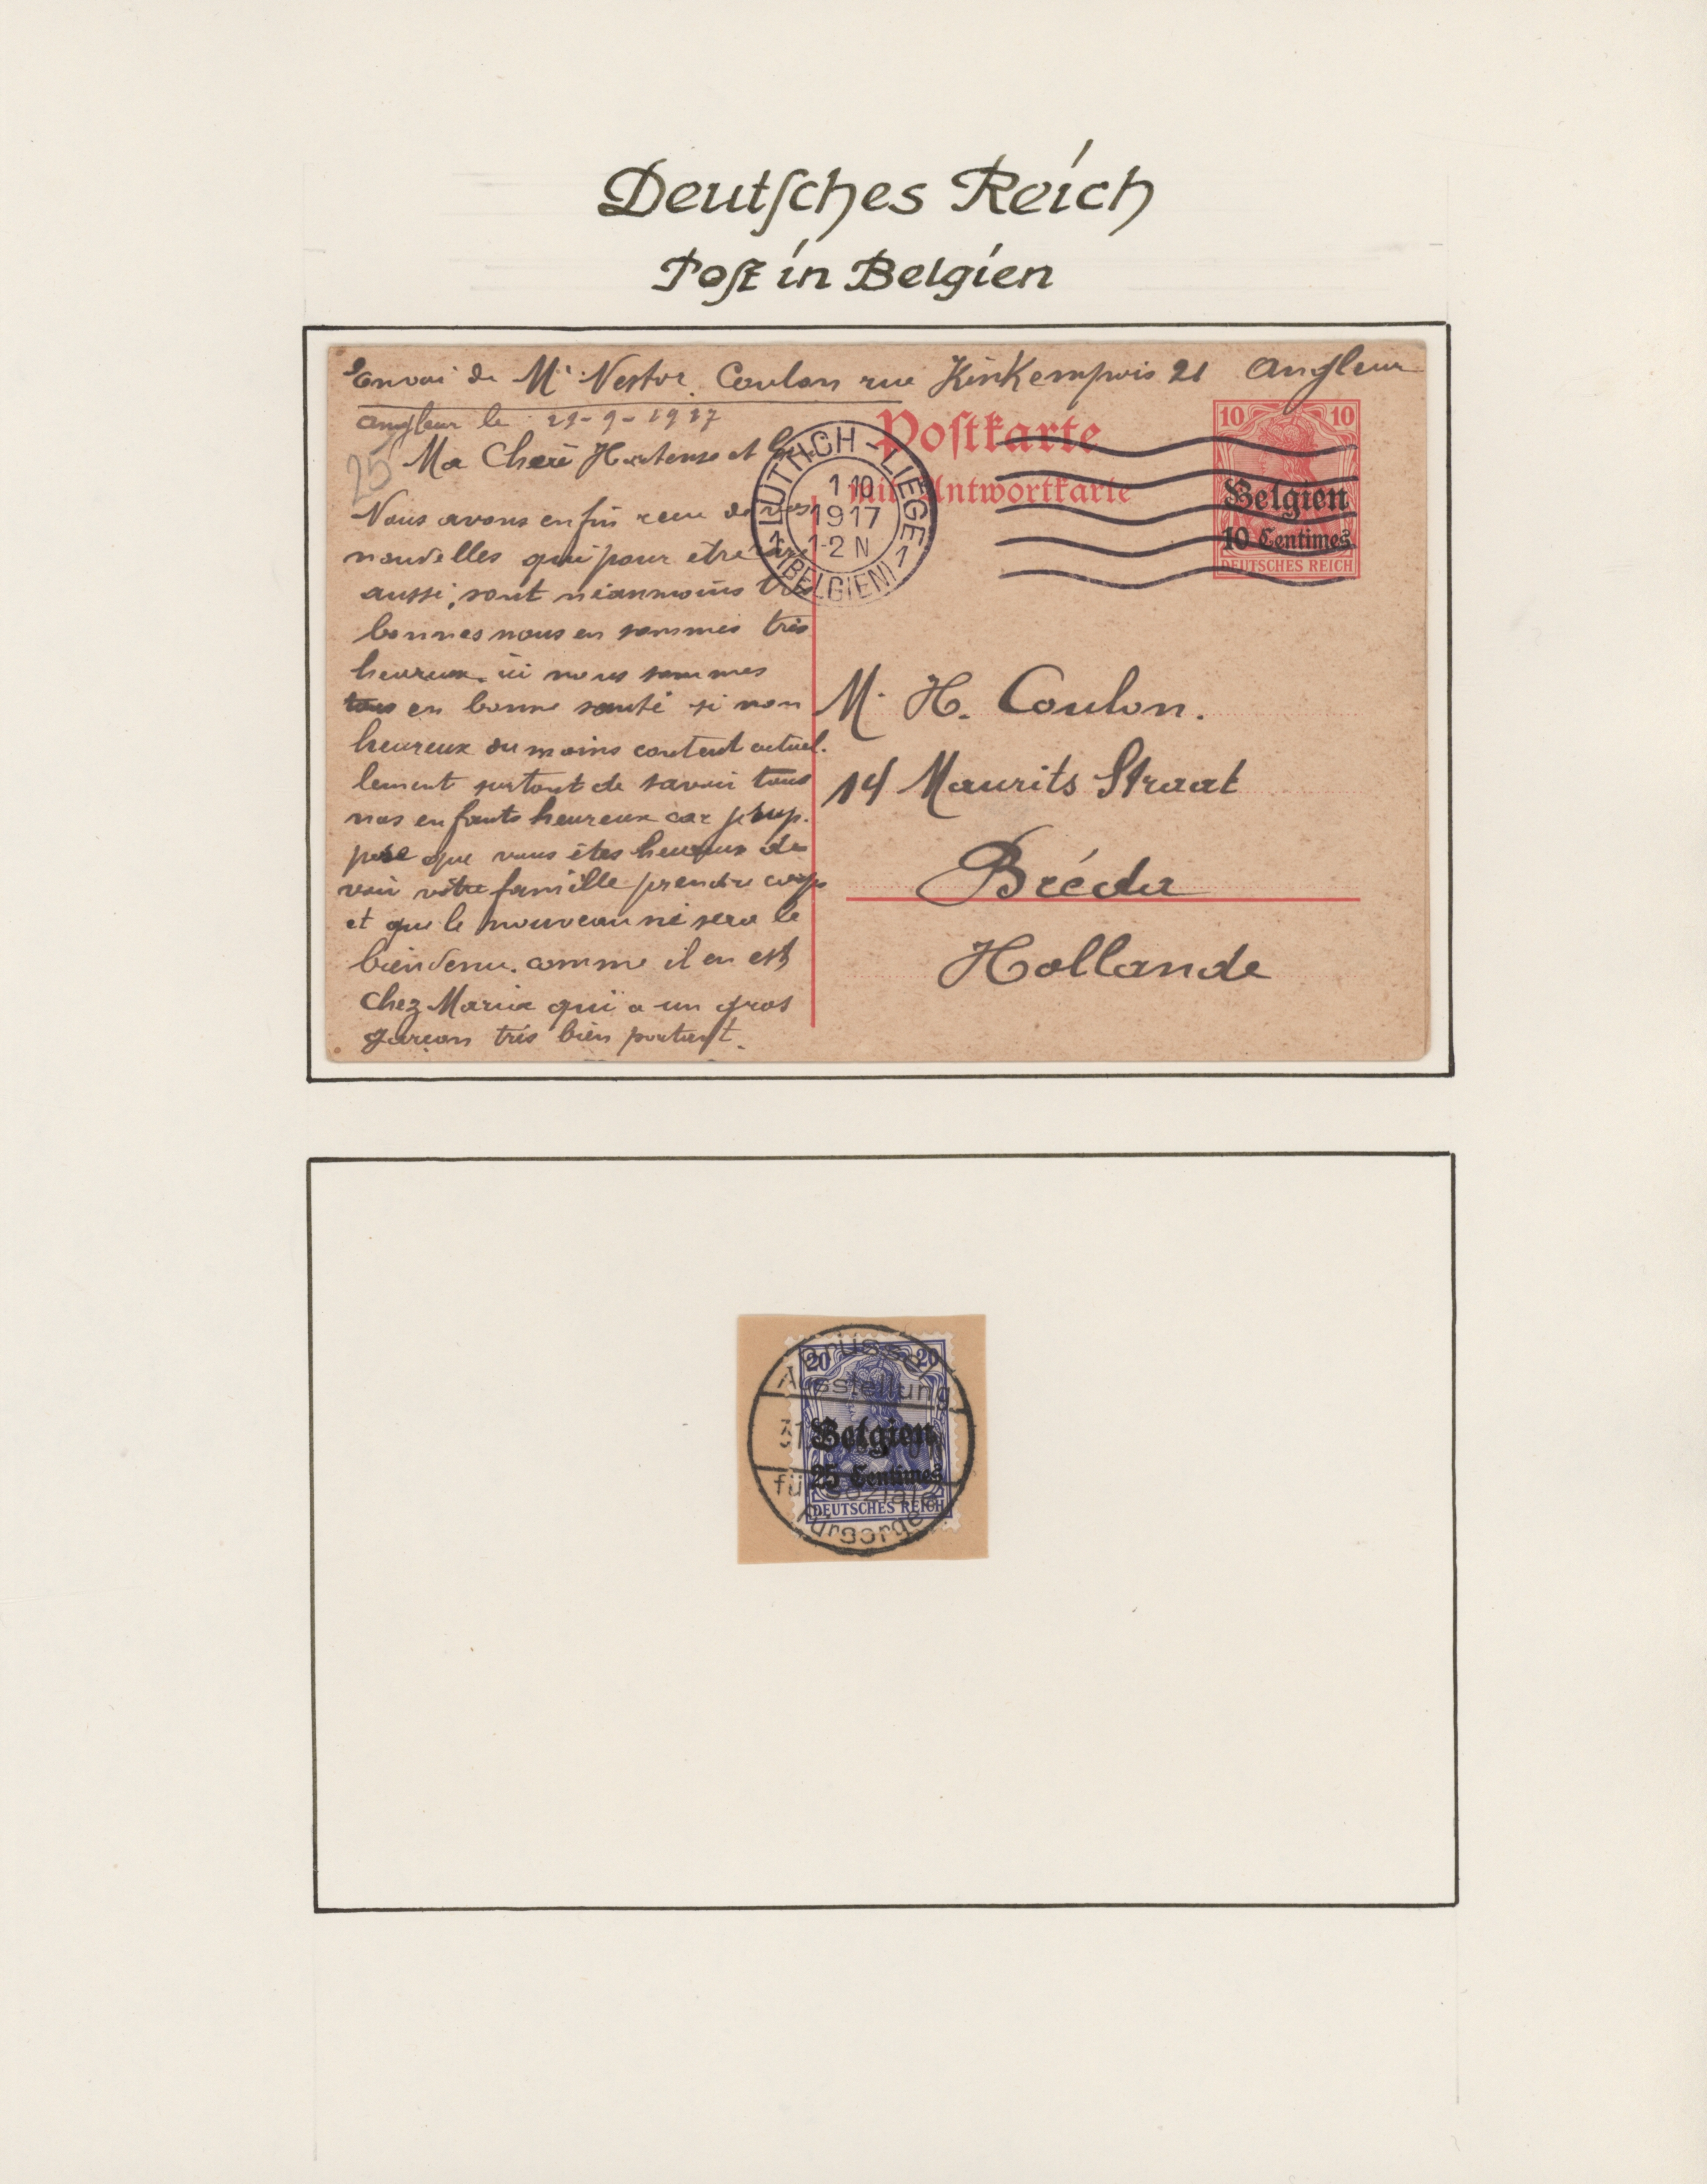 Deutſches Reich
Poſt in Belgien
Envoi de Mr Nestor Coulon rue KinKempois 21 Angleur
Angleur le 29-9-1917
25
Ma Chère Hortense et
Nous avons enfin reçu de vos
nouvelles qui pour être
aussi, sont néanmoins très
bonnes nous en sommes très
heureux. ici nous sommes
tous en bonne santé si non
heureux du moins content actuel.
lement surtout de savoir tous
nos enfants heureux car je sup.
pose que vous êtes heureux de
voir votre famille prendre corps
et que le nouveau né sera le
bienvenu. comme il en est
chez Maria qui a un gros
garçon très bien portant.
LÜTTICH - LIÈGE
1 10
1917
1-2 N
1 (BELGIEN) 1
Poſtkarte
mit Antwortkarte
10 10
Belgien
10 Centimes
DEUTSCHES REICH
M. H. Coulon.
14 Maurits Straat
Bréda
Hollande
Brüssel
Ausstellung
31
für Soziale
Fürsorge
20 20
Belgien
25 Centimes
DEUTSCHES REICH